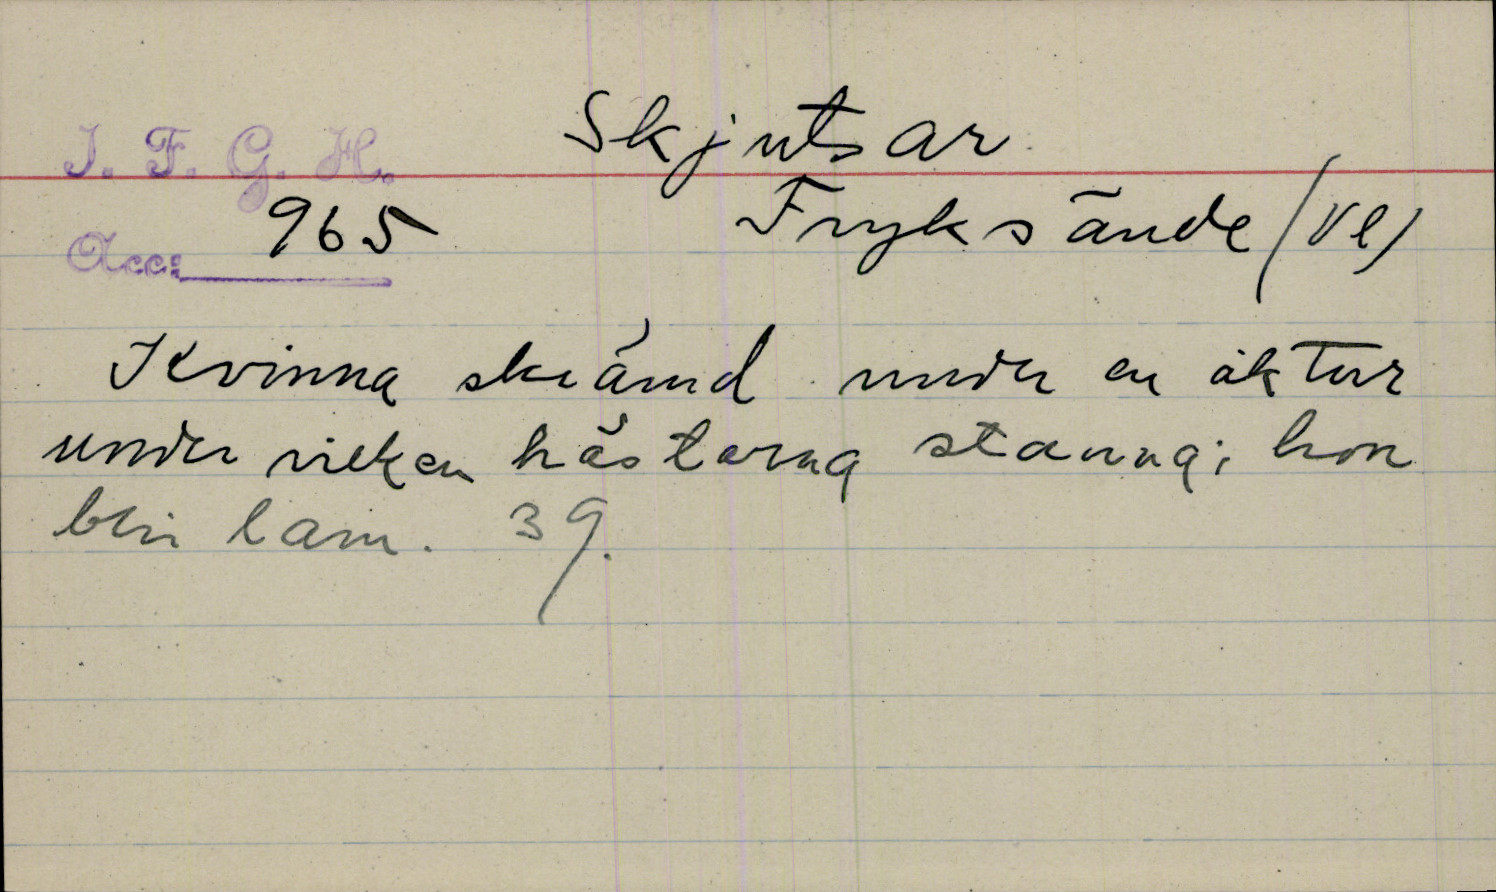 Skjutsar
I. F. G. H.
965
Fryksände (Vl)
Acc:
Kvinna skrämd under en åktur
under vilken hästarna stanna; hon
blir lam. 39.